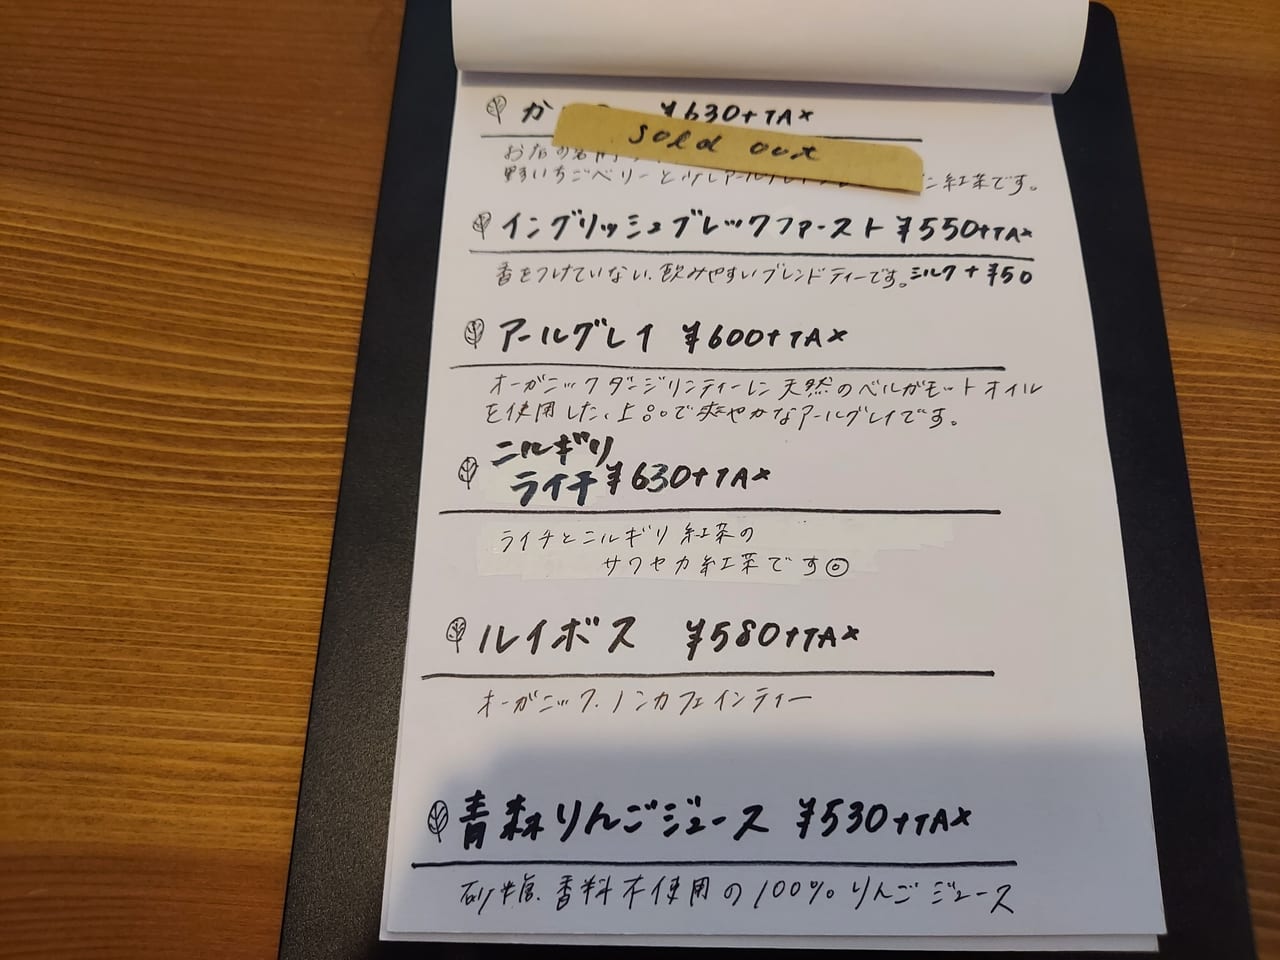 か ¥630+TAX
sold out
お店の名前
野いちごベリーと 紅茶です。
イングリッシュブレックファースト ¥550+TAX
香をつけていない、飲みやすいブレンドティーです。ミルク+¥50
アールグレイ ¥600+TAX
オーガニックダージリンティーに天然のベルガモットオイル
を使用した、上品で爽やかなアールグレイです。
ニルギリ
ライチ ¥630+TAX
ライチとニルギリ紅茶の
サワヤカ紅茶です◎
ルイボス ¥580+TAX
オーガニック、ノンカフェインティー
青森りんごジュース ¥530+TAX
砂糖、香料不使用の100%りんごジュース